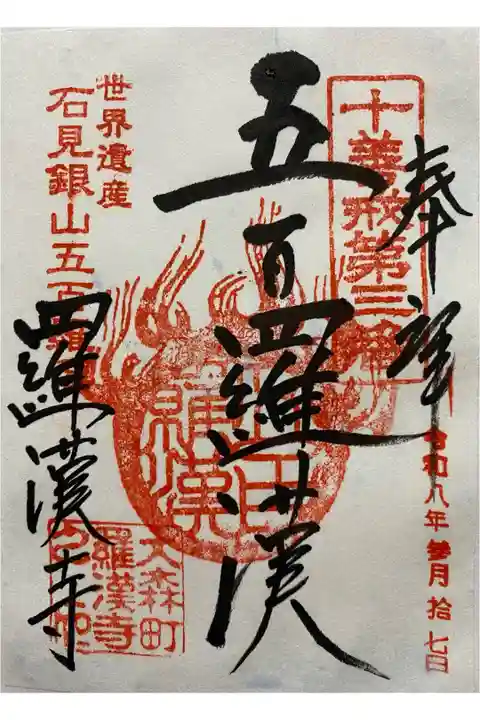 奉拝
十善戒第三番
令和八年 参月 拾七日
五百羅漢
五百羅漢
世界遺産
石見銀山五百羅漢
羅漢寺
大森町
羅漢寺